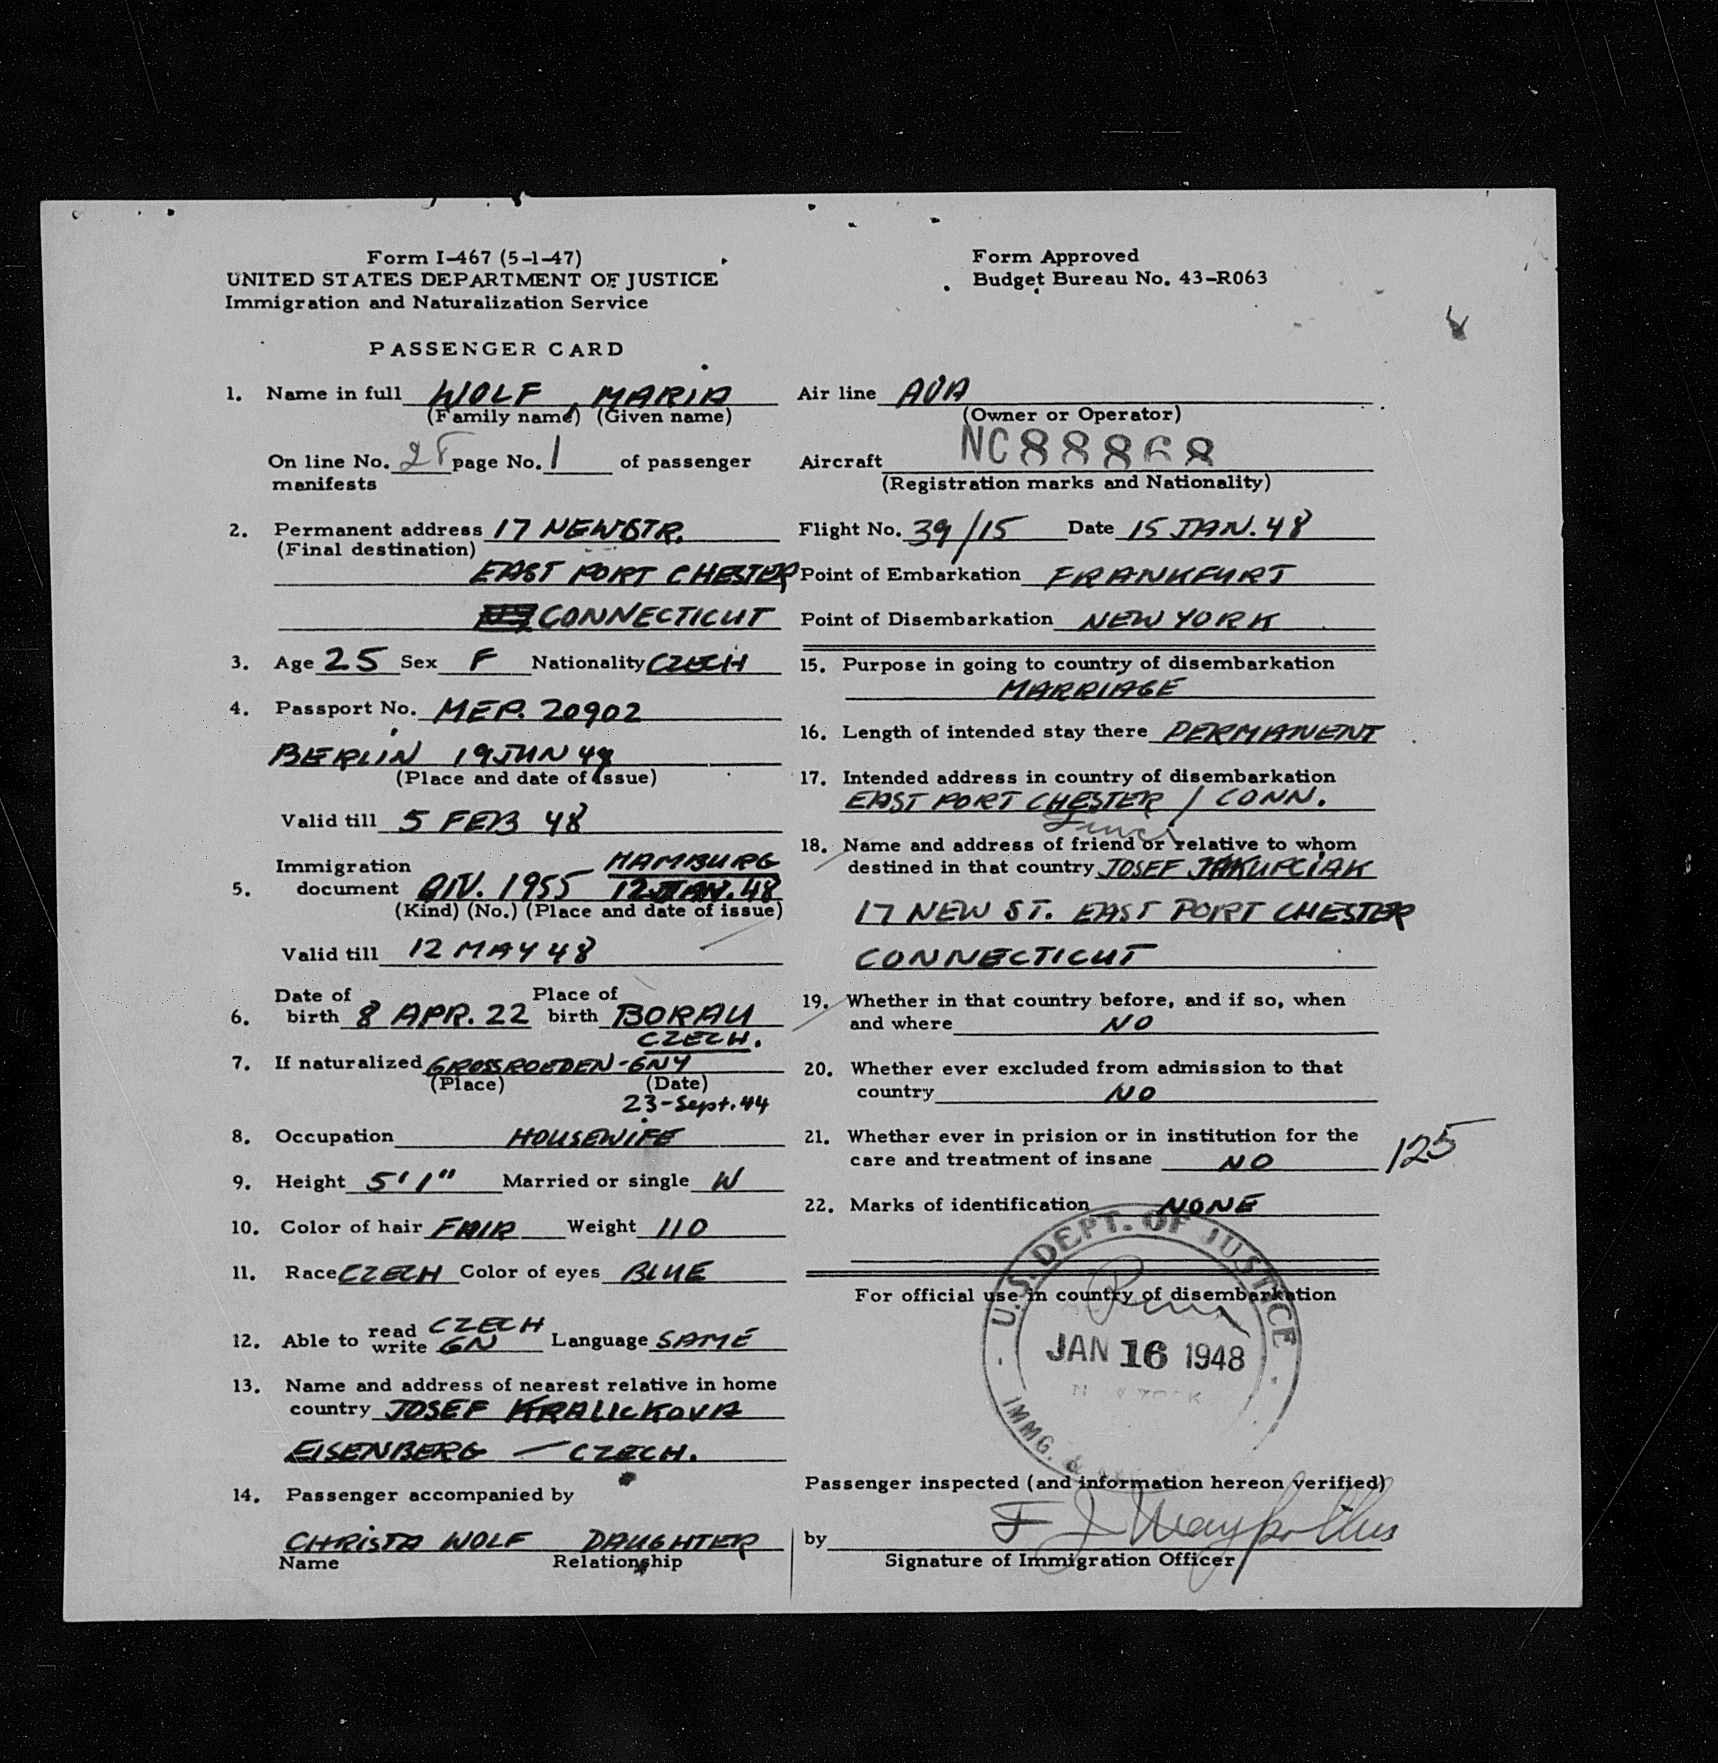 Form I-467 (5-1-47)
UNITED STATES DEPARTMENT OF JUSTICE
Immigration and Naturalization Service
Form Approved
Budget Bureau No. 43-R063
PASSENGER CARD
1. Name in full WOLF, MARIA
(Family name) (Given name)
On line No. page No. 1 of passenger
manifests
2. Permanent address 17 NEWSTR.
(Final destination)
EAST PORT CHESTER
CONNECTICUT
3. Age 25 Sex F Nationality CZECH
4. Passport No. MEP. 20902
BERLIN 19 JUN
(Place and date of issue)
Valid till 5 FEB 48
Immigration HAMBURG
5. document QIV. 1955 12 JAN. 48
(Kind) (No.) (Place and date of issue)
Valid till 12 MAY 48
Date of Place of
6. birth 8 APR. 22 birth BORAU
CZECH.
7. If naturalized GROSSROEDEN-GNY
(Place) (Date)
23-Sept. 44
8. Occupation HOUSEWIFE
9. Height 5'1" Married or single W
10. Color of hair FAIR Weight 110
11. Race CZECH Color of eyes BLUE
12. Able to read write CZECH GN Language SAME
13. Name and address of nearest relative in home
country JOSEF KRALICKOVA
EISENBERG - CZECH.
14. Passenger accompanied by
CHRISTA WOLF DAUGHTER
Name Relationship
Air line AOA
(Owner or Operator)
Aircraft NC 88868
(Registration marks and Nationality)
Flight No. 39/15 Date 15 JAN. 48
Point of Embarkation FRANKFURT
Point of Disembarkation NEW YORK
15. Purpose in going to country of disembarkation
MARRIAGE
16. Length of intended stay there PERMANENT
17. Intended address in country of disembarkation
EAST PORT CHESTER / CONN.
18. Name and address of friend or relative to whom
destined in that country JOSEF JAKUPCIAK
17 NEW ST. EAST PORT CHESTER
CONNECTICUT
19. Whether in that country before, and if so, when
and where NO
20. Whether ever excluded from admission to that
country NO
21. Whether ever in prision or in institution for the
care and treatment of insane NO
125
22. Marks of identification NONE
For official use in country of disembarkation
U.S. DEPT. OF JUSTICE
JAN 16 1948
IMMG. &
Passenger inspected (and information hereon verified)
by
Signature of Immigration Officer